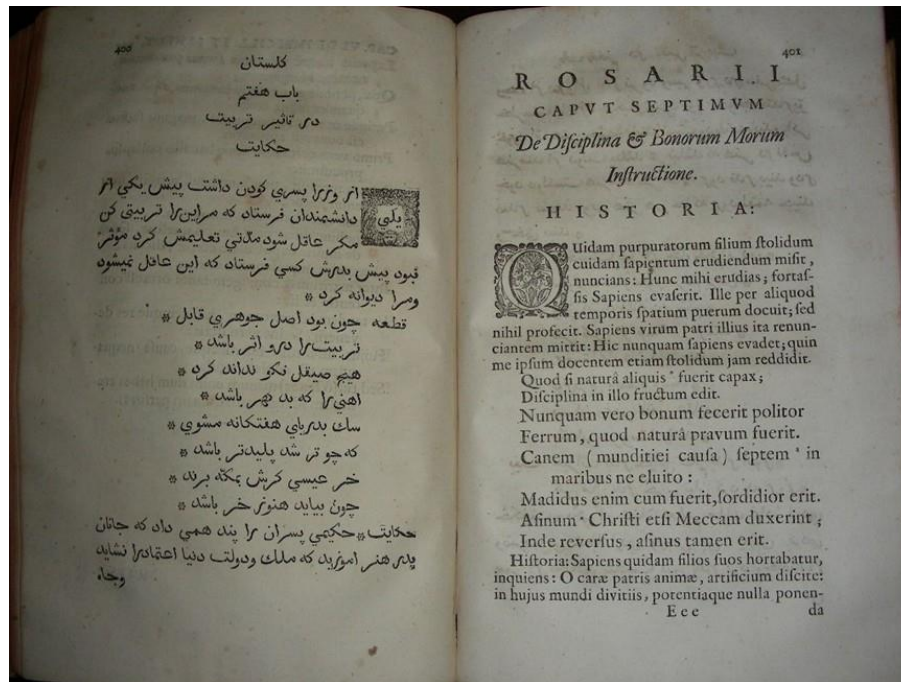 400
کلستان
باب هفتم
در تاثیر تربیت
حکایت
یکی از وزرا پسری کودن داشت پیش یکی از
دانشمندان فرستاد که مراین را تربیتی کن
مکر عاقل شود مدّتی تعلیمش کرد مؤثّر
نبود پیش پدرش کسی فرستاد که این عاقل نمیشود
ومرا دیوانه کرد *
قطعه چون بود اصل جوهری قابل *
تربیت را درو اثر باشد *
هیچ صیقل نکو نداند کرد *
اهنی را که بد گهر باشد *
سک بدریای هفتکانه مشوی *
که چو تر شد پلیدتر باشد *
خر عیسی کرش بمکّه برند *
چون بیاید هنوز خر باشد *
حکایت * حکیمی پسران را پند همی داد که جانان
پدر هنر اموزید که ملک ودولت دنیا اعتمادرا نشاید
وجاه
401
ROSARII
CAPVT SEPTIMVM
De Diſciplina & Bonorum Morum
Inſtructione.
HISTORIA:
QUidam purpuratorum filium ſtolidum
cuidam ſapientum erudiendum miſit,
nuncians: Hunc mihi erudias; fortaſ-
ſis Sapiens evaſerit. Ille per aliquod
temporis ſpatium puerum docuit; ſed
nihil profecit. Sapiens virum patri illius ita renun-
ciantem mittit: Hic nunquam ſapiens evadet; quin
me ipſum docentem etiam ſtolidum jam reddidit.
Quod ſi naturâ aliquis ' fuerit capax;
Diſciplina in illo fructum edit.
Nunquam vero bonum fecerit politor
Ferrum, quod naturâ pravum fuerit.
Canem ( munditiei cauſa ) ſeptem ' in
maribus ne eluito :
Madidus enim cum fuerit, ſordidior erit.
Aſinum ' Chriſti etſi Meccam duxerint ;
Inde reverſus, aſinus tamen erit.
Hiſtoria: Sapiens quidam filios ſuos hortabatur,
inquiens: O caræ patris animæ, artificium diſcite:
in hujus mundi divitiis, potentiaque nulla ponen-
Eee da